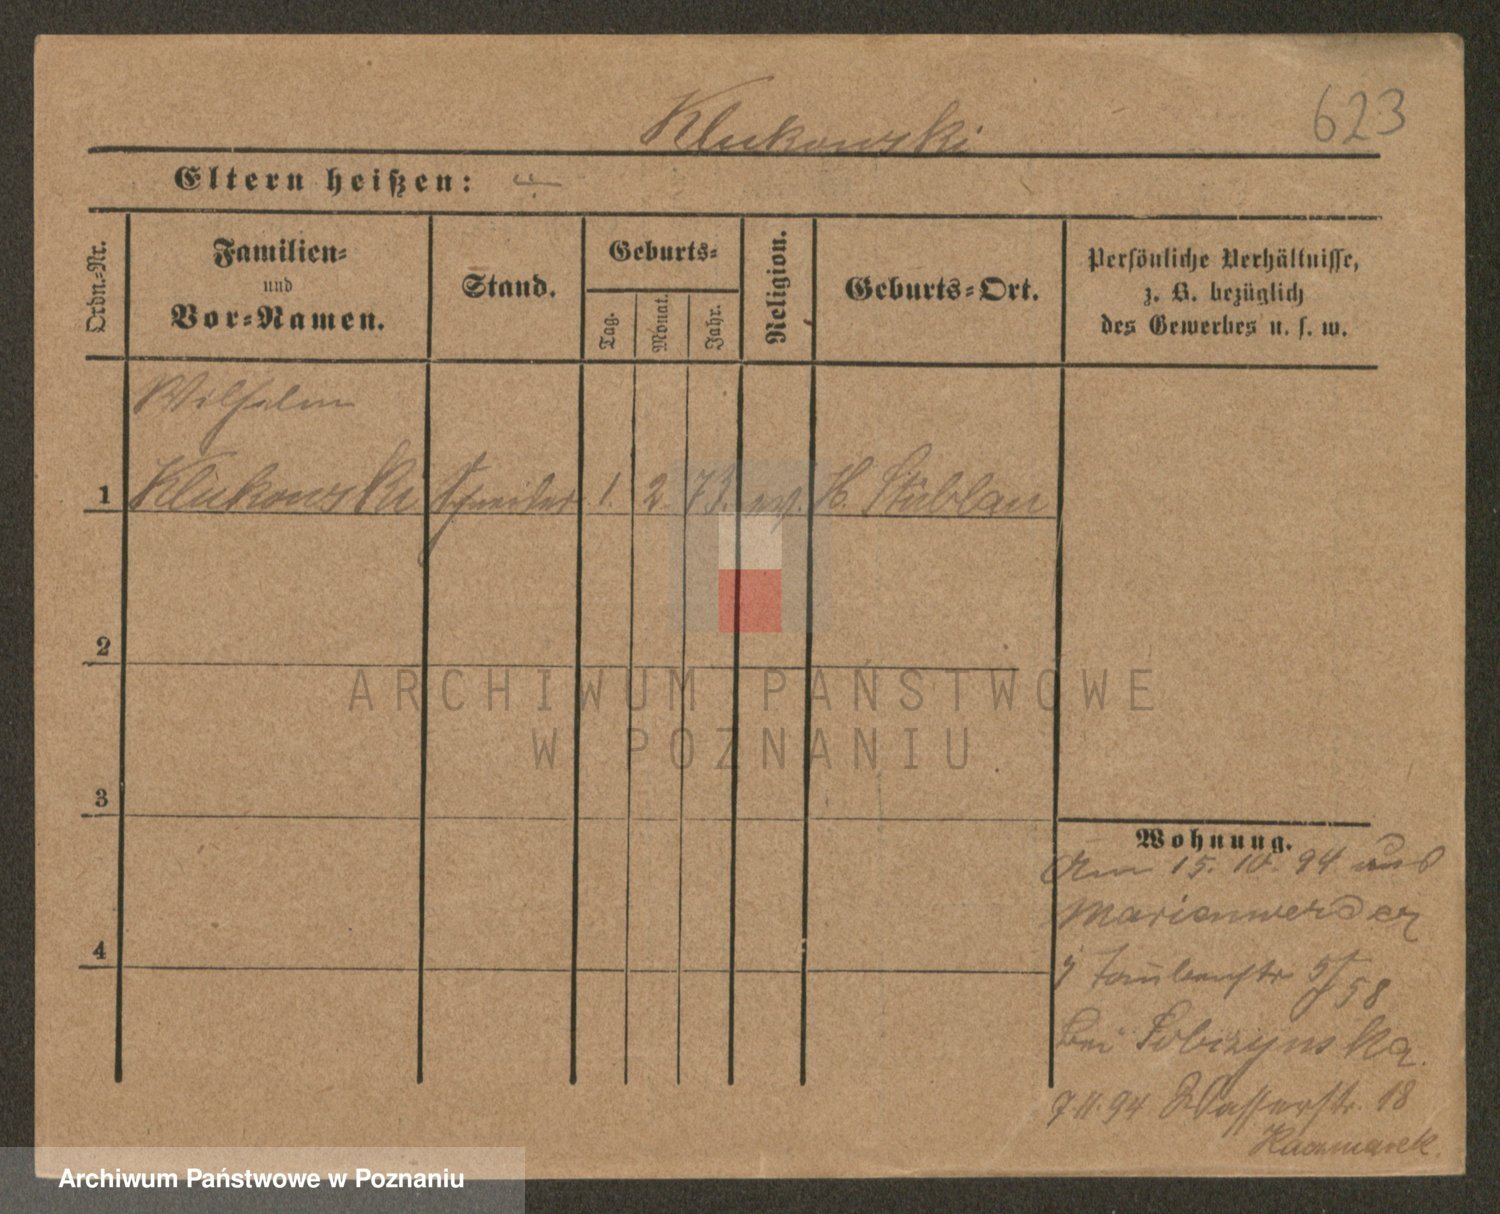 623
Klukowski
Eltern heißen:
Ordn.-Nr.
Familien-
und
Vor-Namen.
Stand.
Geburts-
Tag.
Monat.
Jahr.
Religion.
Geburts-Ort.
Persönliche Verhältnisse,
z. B. bezüglich
des Gewerbes u. s. w.
Wilhelm
1 Klukowski Schneider 1. 2. 73. ev. H. Stüblau
2
3
4
Wohnung.
Am 15. 10. 94 aus
Marienwerder
Taubenstr 5/58
bei
7.11.94 Wasserstr. 18
Kaczmarek.
ARCHIWUM PAŃSTWOWE
W POZNANIU
Archiwum Państwowe w Poznaniu